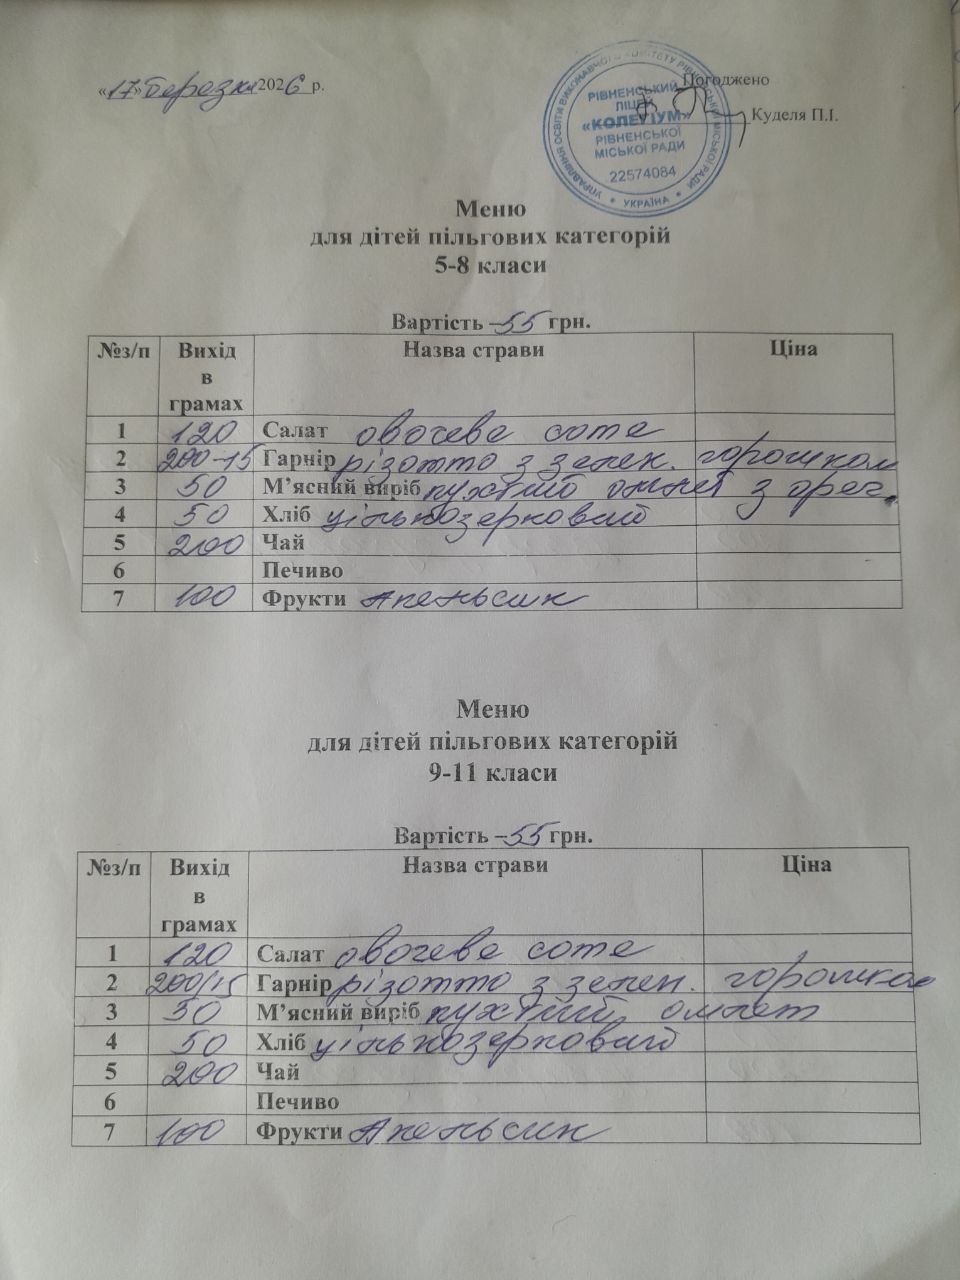 «17» березня 2026 р.
Погоджено
Куделя П.І.
УПРАВЛІННЯ ОСВІТИ ВИКОНАВЧОГО КОМІТЕТУ РІВНЕНСЬКОЇ МІСЬКОЇ РАДИ
РІВНЕНСЬКИЙ
ЛІЦЕЙ
«КОЛЕГІУМ»
РІВНЕНСЬКОЇ
МІСЬКОЇ РАДИ
22574084
* УКРАЇНА *
Меню
для дітей пільгових категорій
5-8 класи
Вартість – 55 грн.
№з/п Вихід в грамах Назва страви Ціна
1 120 Салат овочеве соте
2 200-15 Гарнір різотто з зелен. горошком
3 50 М’ясний виріб пухкий омлет з
4 50 Хліб цільнозерновий
5 200 Чай
6 Печиво
7 100 Фрукти Апельсин
Меню
для дітей пільгових категорій
9-11 класи
Вартість – 55 грн.
№з/п Вихід в грамах Назва страви Ціна
1 120 Салат овочеве соте
2 200/15 Гарнір різотто з зелен. горошком
3 50 М’ясний виріб пухкий омлет
4 50 Хліб цільнозерновий
5 200 Чай
6 Печиво
7 100 Фрукти Апельсин